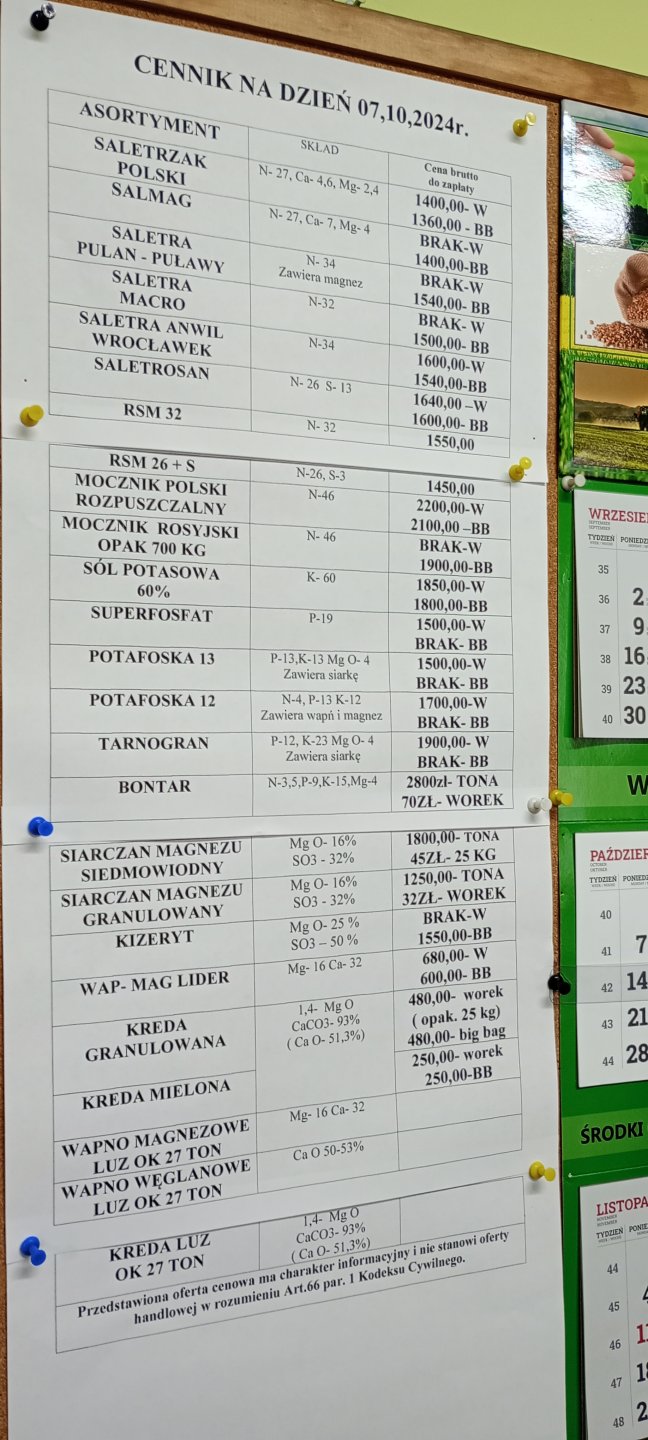 CENNIK NA DZIEŃ 07,10,2024r.
ASORTYMENT
SKŁAD
Cena brutto
do zapłaty
SALETRZAK
POLSKI
N- 27, Ca- 4,6, Mg- 2,4
1400,00- W
1360,00 - BB
SALMAG
N- 27, Ca- 7, Mg- 4
BRAK-W
1400,00-BB
SALETRA
PULAN - PUŁAWY
N- 34
Zawiera magnez
BRAK-W
1540,00- BB
SALETRA
MACRO
N-32
BRAK- W
1500,00- BB
SALETRA ANWIL
WROCŁAWEK
N-34
1600,00-W
1540,00-BB
SALETROSAN
N- 26 S- 13
1640,00 –W
1600,00- BB
RSM 32
N- 32
1550,00
RSM 26 + S
N-26, S-3
1450,00
MOCZNIK POLSKI
ROZPUSZCZALNY
N-46
2200,00-W
2100,00 –BB
MOCZNIK ROSYJSKI
OPAK 700 KG
N- 46
BRAK-W
1900,00-BB
SÓL POTASOWA
60%
K- 60
1850,00-W
1800,00-BB
SUPERFOSFAT
P-19
1500,00-W
BRAK- BB
POTAFOSKA 13
P-13,K-13 Mg O- 4
Zawiera siarkę
1500,00-W
BRAK- BB
POTAFOSKA 12
N-4, P-13 K-12
Zawiera wapń i magnez
1700,00-W
BRAK- BB
TARNOGRAN
P-12, K-23 Mg O- 4
Zawiera siarkę
1900,00- W
BRAK- BB
BONTAR
N-3,5,P-9,K-15,Mg-4
2800zł- TONA
70ZŁ- WOREK
SIARCZAN MAGNEZU
SIEDMOWIODNY
Mg O- 16%
SO3 - 32%
1800,00- TONA
45ZŁ- 25 KG
SIARCZAN MAGNEZU
GRANULOWANY
Mg O- 16%
SO3 - 32%
1250,00- TONA
32ZŁ- WOREK
KIZERYT
Mg O- 25 %
SO3 – 50 %
BRAK-W
1550,00-BB
WAP- MAG LIDER
Mg- 16 Ca- 32
680,00- W
600,00- BB
KREDA
GRANULOWANA
1,4- Mg O
CaCO3- 93%
( Ca O- 51,3%)
480,00- worek
( opak. 25 kg)
480,00- big bag
KREDA MIELONA
250,00- worek
250,00-BB
WAPNO MAGNEZOWE
LUZ OK 27 TON
Mg- 16 Ca- 32
WAPNO WĘGLANOWE
LUZ OK 27 TON
Ca O 50-53%
KREDA LUZ
OK 27 TON
1,4- Mg O
CaCO3- 93%
( Ca O- 51,3%)
Przedstawiona oferta cenowa ma charakter informacyjny i nie stanowi oferty
handlowej w rozumieniu Art.66 par. 1 Kodeksu Cywilnego.
WRZESIE
TYDZIEŃ PONIEDZ
35
36 2
37 9
38 16
39 23
40 30
W
PAŹDZIER
TYDZIEŃ PONIEDZ
40
41 7
42 14
43 21
44 28
ŚRODKI
LISTOPA
TYDZIEŃ PONIE
44
45 4
46 11
47 18
48 2